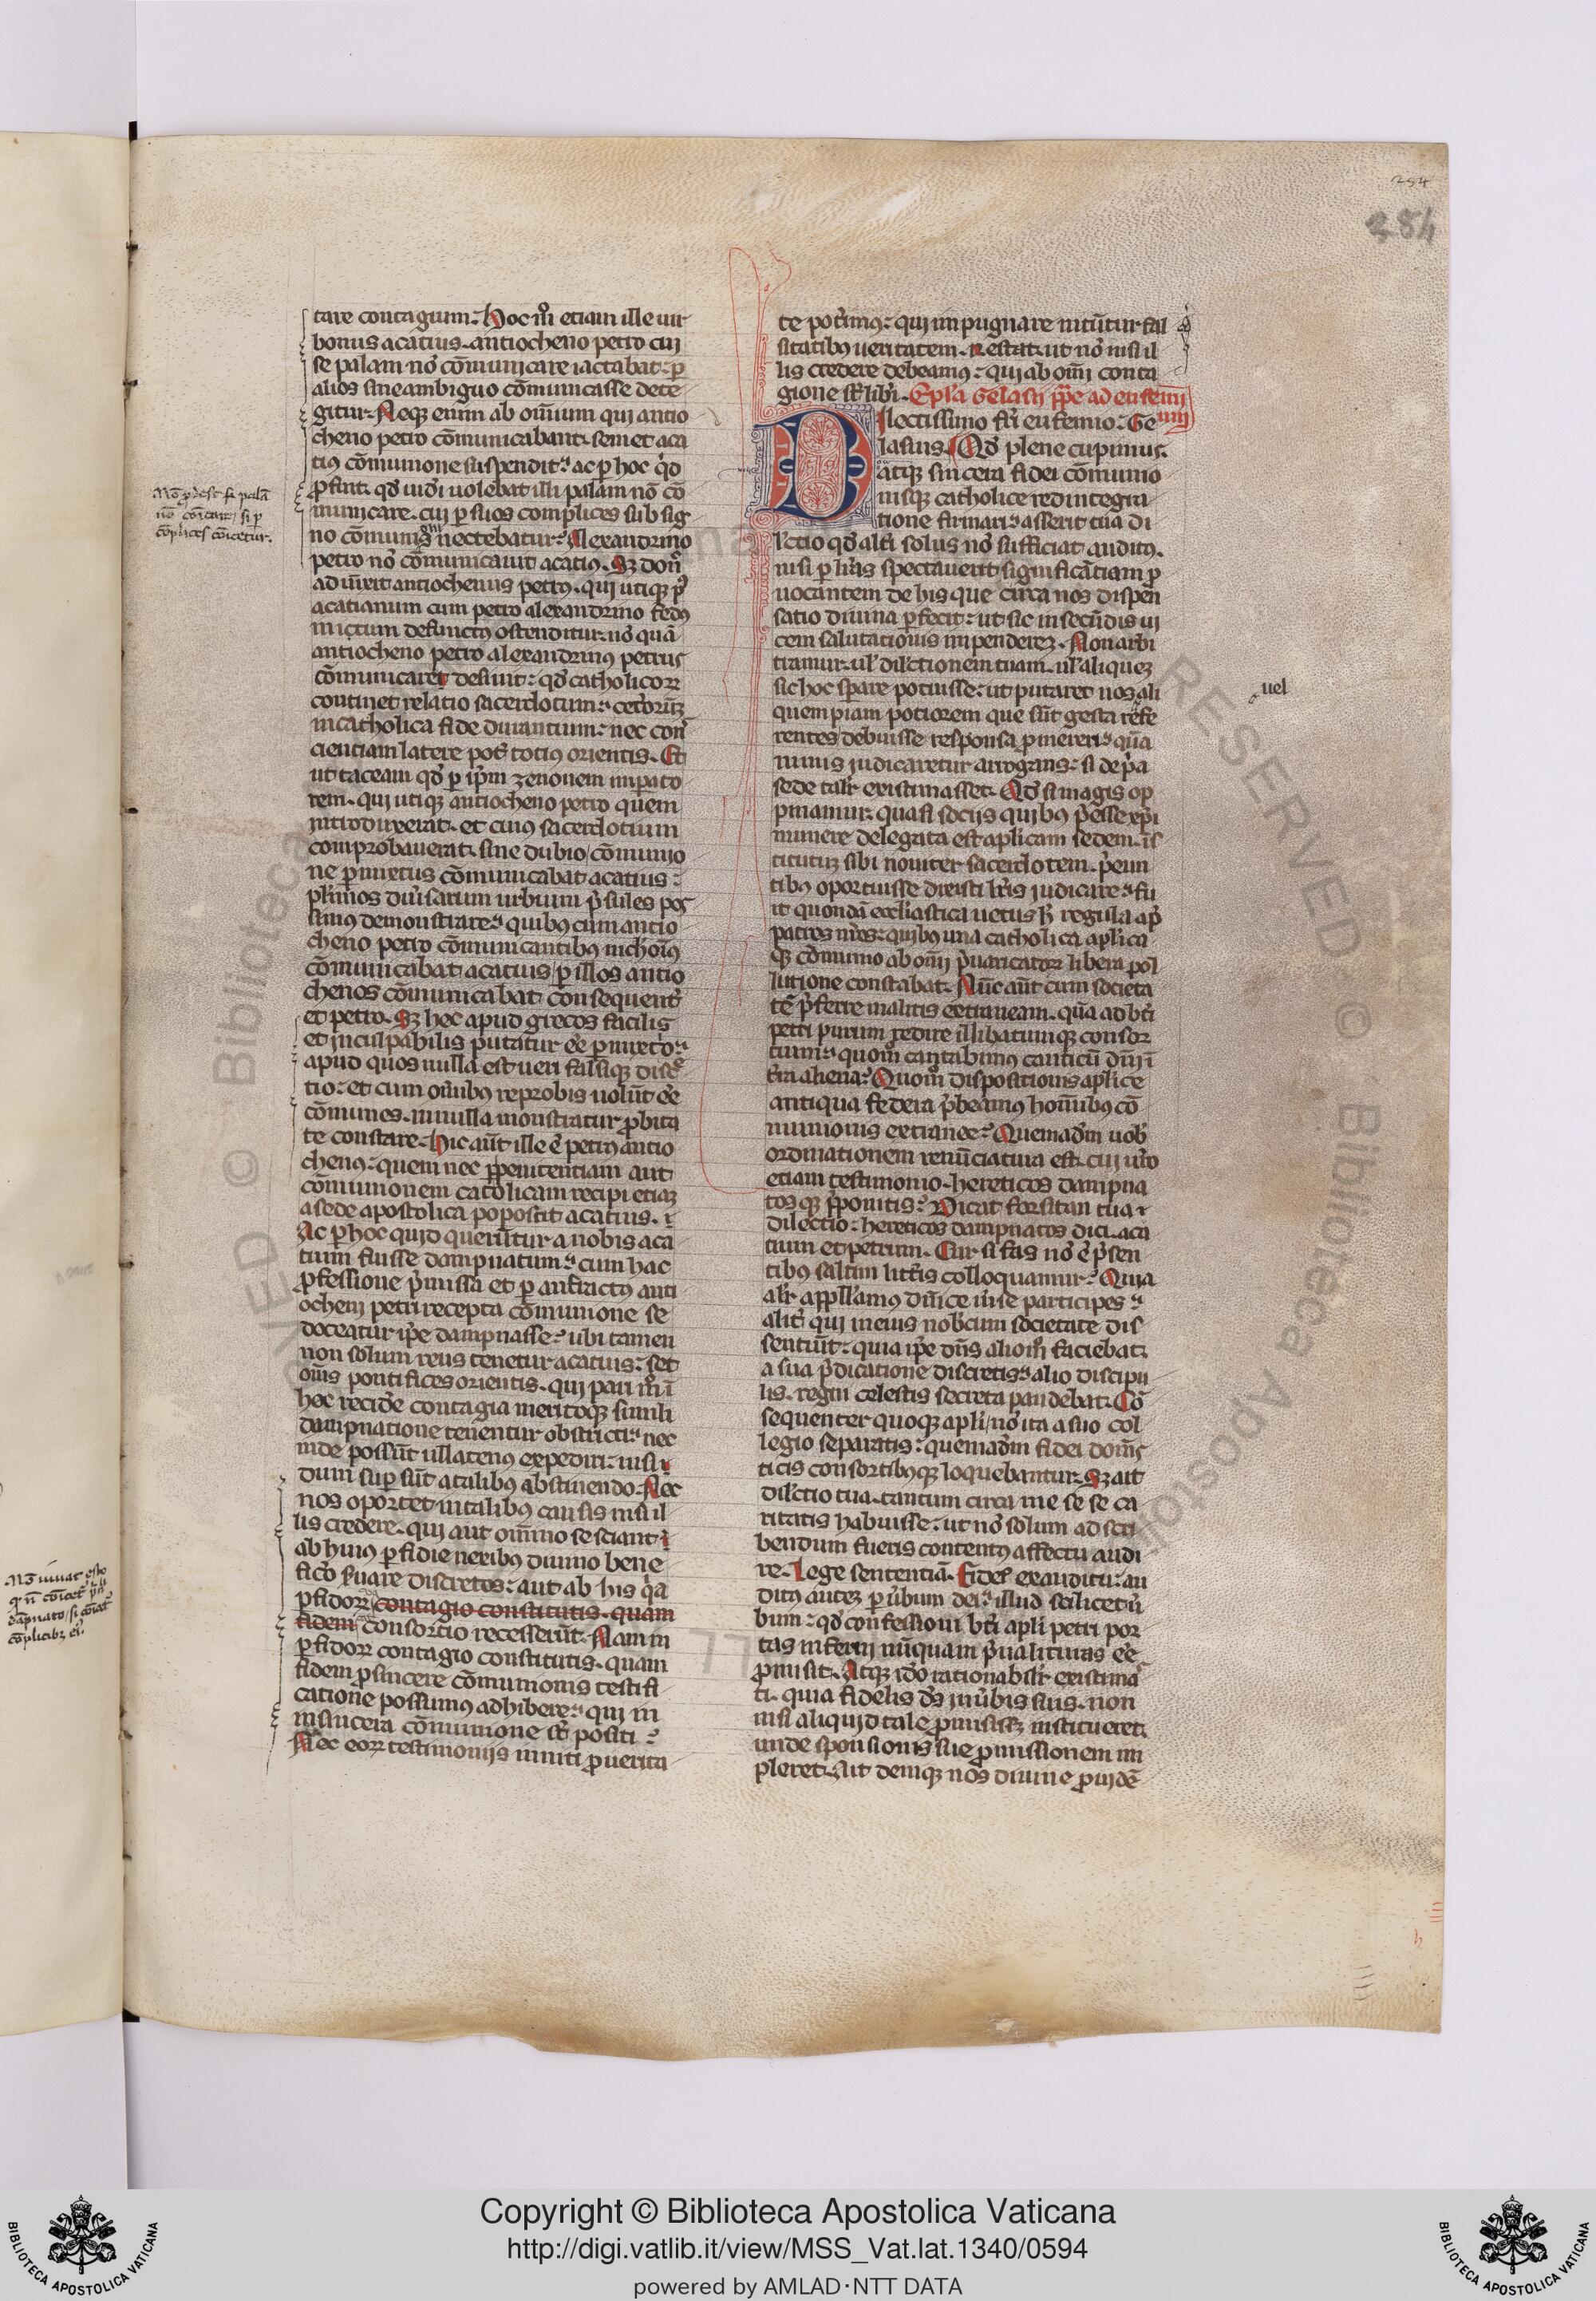 284
284
tare contagium. Hoc m̊ etiam ille uir
bonus acatius. antiocheno petro cui
se palam nō cōmunicare iactabat. ꝑ
alios sine ambiguo cōmunicasse dete
gitur. Neqꝫ enim ab omīum qui antio
cheno petro cōmunicabant. semet aca
tiꝰ cōmunione suspendit. ac ꝑ hoc qͥd
petro nō cōmunicauit acatiꝰ.
acatianum cum petro alexandrino fedꝰ
antiocheno petro alexandrinꝰ petrus
cōmunicare desiuit. qd̄ catholicoꝝ
continet relatio sacerdotum.
in catholica fide durantium. nec con
cientiam latere pot̄ totiꝰ orientis. Et
ut taceam qd̄ ꝑ ip̄m zenonem impato
rem. qui utiqꝫ antiocheno petro quem
introduxerat. et cuiꝰ sacerdotium
comprobauerat. sine dubio cōmunio
ne ꝑmixtus cōmunicabat acatius.
simus demonstrare. quibꝰ cum antio
cheno petro cōmunicantibꝰ
cōmunicabat acatius ꝑ illos antio
chenos cōmunicabat consequent̄
et petro. Sꝫ hec apud grecos facilis
et inculpabilis putatur ēe ꝑmixtio.
apud quos nulla est ueri falsiqꝫ discͥ
tio. et cum omībꝰ reprobis uolūt ēe
cōmunes. in nulla monstratur ꝓbita
te constare. Hic aūt ille ē petrꝰ antio
chenꝰ. quem nec ꝑ penitentiam aut
cōmunionem catolicam recipi etiaꝫ
a sede apostolica poposcit acatius.
Ac ꝑ hoc quid querūtur a nobis aca
tium fuisse dampnatum. cum hac
ꝓfessione p̄missa et ꝑ anfractꝰ anti
ocheni petri recepta cōmunione se
doceatur ip̄e dampnasse. ubi tamen
non solum reus tenetur acatius. set
om̄s pontifices orientis. qui pari m̊ ī
hec recide contagia meritoqꝫ simili
dampnatione tenentur obstricti. nec
inde possūt ullatenus expediri. nisi
dum suꝑ sūt a talibꝰ abstinendo. Nec
nos oportet in talibꝰ causis nisi il
lis credere. qui aut omīno se sciant
ab huiꝰ ꝑfidie nexibꝰ diuino bene
ficio ẜuare discretos. aut ab his
ꝑfidoꝝ contagio constitutis. quam
fidem consortio recesserūt. Nam in
ꝑfidoꝝ contagio constitutis. quam
fidem ꝓ sincere cōmunionis testifi
catione possumus adhibere. qui in
insincera cōmunione sūt positi.
Nec eoꝝ testimoniis inniti ꝓ uerita
te potimꝰ. qui impugnare nitūtur fal
sitatibꝰ ueritatem. Restat. ut nō nisi il
lis credere debeamꝰ. qui ab omī conta
gione sūt libi. Epl̄a gelasii pp̄e ad eufemi
um
Dilectissimo frī eufemio. Ge
lasius. Qd̄ plene cupimus.
atiqꝫ sincera fidei cōmunio
nisqꝫ catholice redintegra
tione firmari. asserit tua di
lectio qd̄ alt̄i solus nō sufficiat auditꝰ.
nisi ꝑ lr̄as spectauerit significātiam ꝓ
uocantem de his que circa nos dispen
satio diuina ꝑfecit. ut sic in secūdis ui
cem salutationis impendereꝫ. Non arbi
tramur. ul̄ dil̄ctionem tuam. ul̄ aliqueꝫ
sic hoc sperare potuisse. ut putaret nos ali
uel
quempiam potiorem que sūt gesta refe
rentes debuisse responsa ꝓmereri.
nimis iudicaretur arrogans. si de p̄a
sede talit̄ existimasset. Qd̄ si magis op
pinamur. quasi sociis quibꝰ p̄esse xp̄i
munere delegata est aplicam sedem. īs
titutū sibi nouiter sacerdotem. p̄eun
tibꝰ oportuisse dixisti lr̄is iudicare. fu
it quondā eccl̄iastica uetus h̄ regula ap̄
patres nr̄os. quibꝰ una catholica aplica
qꝫ cōmunio ab omī p̄uaricatoꝝ libera pol
lutione constabat. Nūc aūt cum societa
tē p̄ferre malitis extraneam. qͣm ad bt̄i
petri purum redire illibatumqꝫ consor
tium. quom̊ cantabimꝰ canticū dn̄i ī
tr̄a aliena. Quom̊ dispositionis aplice
antiqua federa p̄beamꝰ hominibꝰ cō
munionis extranee. Quemadm̄ uob̄
ordinationem renūciatura est. cui uͦ
etiam testimonio. hereticos dampna
tosqꝫ p̄ponitis. Dicat forsitan tua
dilectio. hereticos dampnatos dici. aca
tium et petrum. Cur si fas nō ē p̄sen
tibꝰ saltim litteris colloquamur. Quia
alit̄ appll̄amꝰ dn̄ice mēse participes.
alit̄ qui in eius nobiscum societate dis
sentiūt. quia ip̄e dn̄s alio m̊ faciebat.
a sua p̄dicatione discretis. alio discipu
lis. regni celestis secreta pandebat. Cō
sequenter quoqꝫ apl̄i nō ita a suo col
legio separatis. quemadm̄ fidei dom̄s
ticis consortibꝰqꝫ loquebantur. Sꝫ ait
dil̄ctio tua. tantum circa me se se ca
ritatis habuisse. ut nō solum ad scri
bendum fueris contentꝰ affectu audi
re. Lege sententiā. Fides ex auditu. au
ditꝰ auteꝫ ꝑ ūbum dei. illud scilicet ū
bum. qd̄ confessioni bt̄i apl̄i petri por
tas inferni nūquam p̄ualituras ēe
ꝓmisit. Atqꝫ id̊ rationabilit̄ existima
ti. quia fidelis dꝰ in ūbis suis. non
nisi aliquid tale ꝓmisisseꝫ institueret.
unde sponsionis sue ꝓmissionem im
pleret. Ait deniqꝫ nos diuine ꝓuidē
Copyright © Biblioteca Apostolica Vaticana
http://digi.vatlib.it/view/MSS_Vat.lat.1340/0594
powered by AMLAD·NTT DATA
BIBLIOTECA APOSTOLICA VATICANA
BIBLIOTECA APOSTOLICA VATICANA